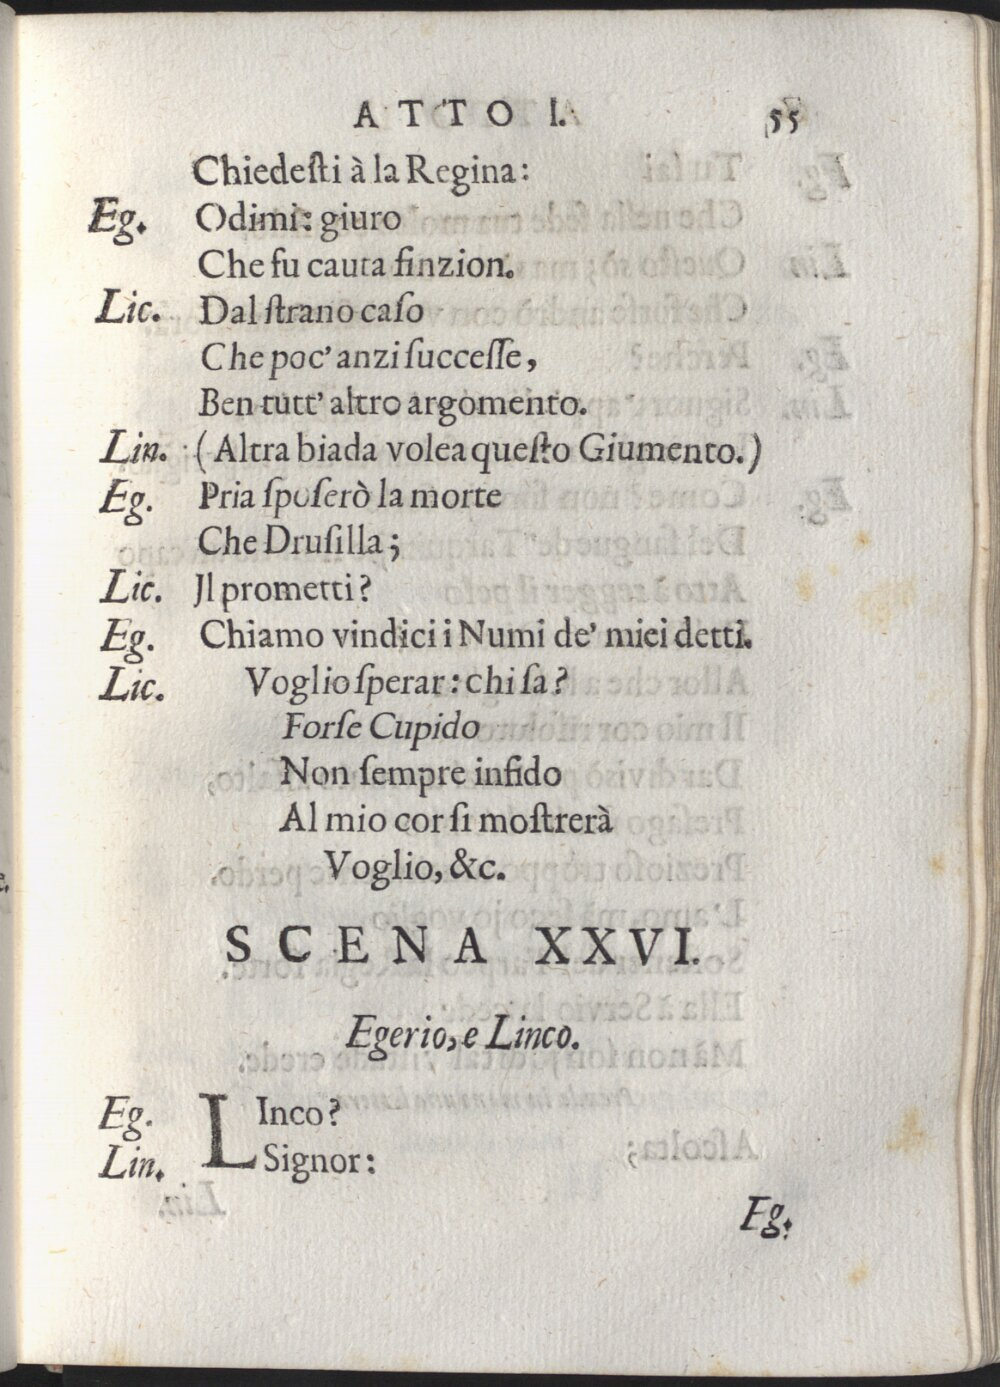 ATTO I. 55
Chiedeſti à la Regina:
Eg. Odimi: giuro
Che fu cauta finzion.
Lic. Dal ſtrano caſo
Che poc' anzi ſucceſſe,
Ben tutt' altro argomento.
Lin. (Altra biada volea queſto Giumento.)
Eg. Pria ſpoſerò la morte
Che Druſilla;
Lic. Jl prometti?
Eg. Chiamo vindici i Numi de' miei detti.
Lic. Voglio ſperar: chi ſa?
Forſe Cupido
Non ſempre infido
Al mio cor ſi moſtrerà
Voglio, &c.
SCENA XXVI.
Egerio, e Linco.
Eg. LInco?
Lin. Signor:
Eg.